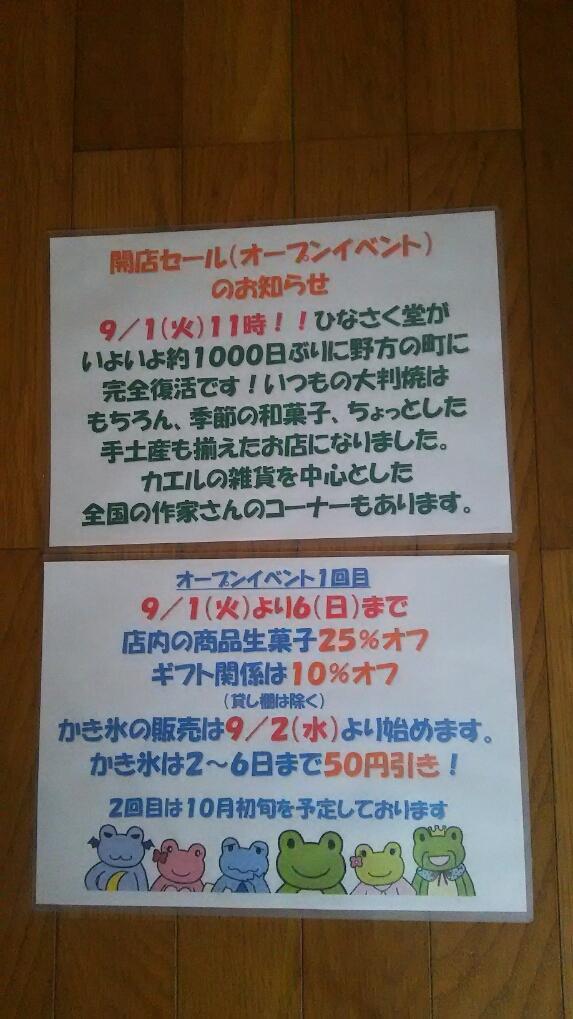 開店セール(オープンイベント)
のお知らせ
9/1(火)11時!!ひなさく堂が
いよいよ約1000日ぶりに野方の町に
完全復活です!いつもの大判焼は
もちろん、季節の和菓子、ちょっとした
手土産も揃えたお店になりました。
カエルの雑貨を中心とした
全国の作家さんのコーナーもあります。
オープンイベント1回目
9/1(火)より6(日)まで
店内の商品生菓子25%オフ
ギフト関係は10%オフ
(貸し棚は除く)
かき氷の販売は9/2(水)より始めます。
かき氷は2~6日まで50円引き!
2回目は10月初旬を予定しております